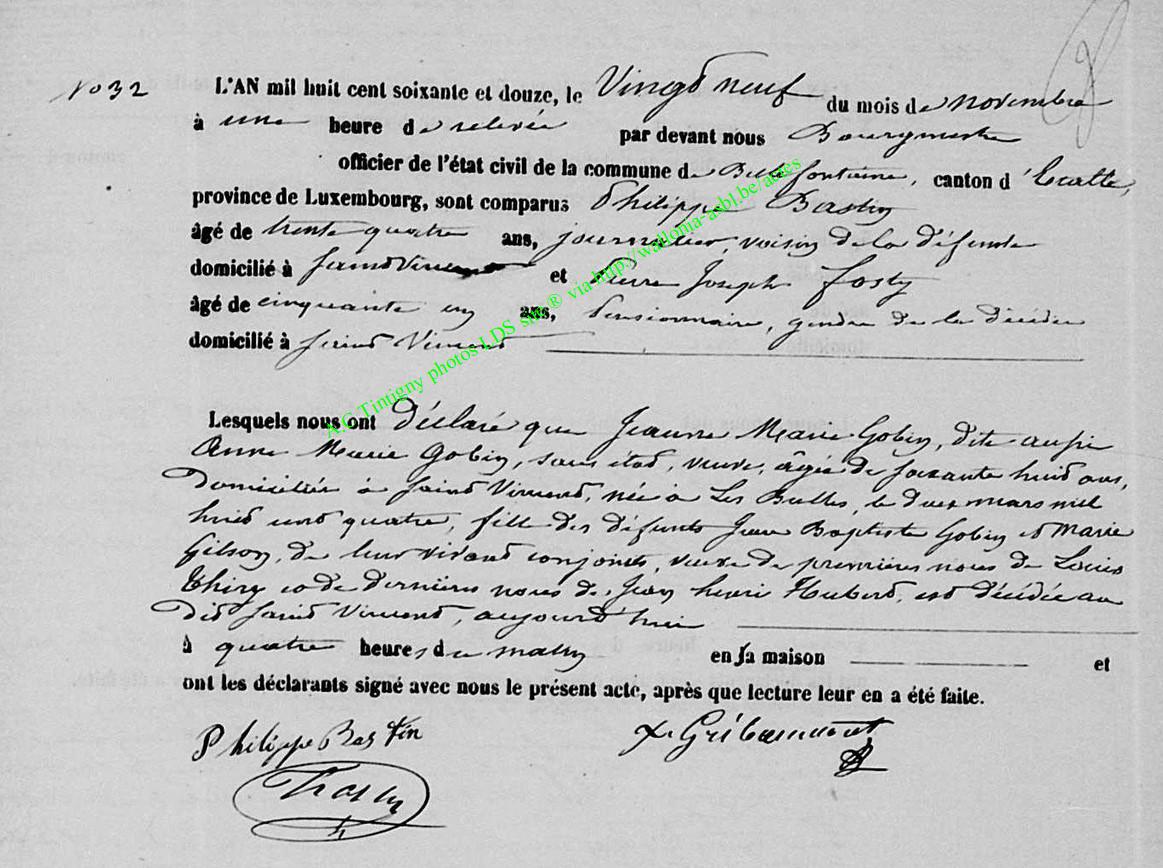 No 32
L'AN mil huit cent soixante et douze, le Vingt neuf du mois de novembre
à une heure de relevée par devant nous Bourgmestre
officier de l'état civil de la commune de Bellefontaine, canton d'Etalle,
province de Luxembourg, sont comparus Philippe Bastin
âgé de trente quatre ans, journalier, voisin de la défunte
domicilié à Saint Vincent et Pierre Joseph Fosty
âgé de cinquante un ans, Pensionnaire, gendre de la décédée
domicilié à Saint Vincent
Lesquels nous ont déclaré que Jeanne Marie Gobin, dite aussi
Anne Marie Gobin, sans état, veuve, âgée de soixante huit ans,
domiciliée à Saint Vincent, née à Les Bulles, le deux mars mil
huit cent quatre, fille des défunts Jean Baptiste Gobin et Marie
Gilson, de leur vivant conjoints, veuve de premières noces de Louis
Thiry et de dernières noces de Jean henri Hubert, est décédée au
dit Saint Vincent, aujourd'hui
à quatre heures du matin en sa maison et
ont les déclarants signé avec nous le présent acte, après que lecture leur en a été faite.
Philippe Bastin
Gribaumont
A.G Tintigny photos LDS site ® via http://wallonia-asbl.be/actes